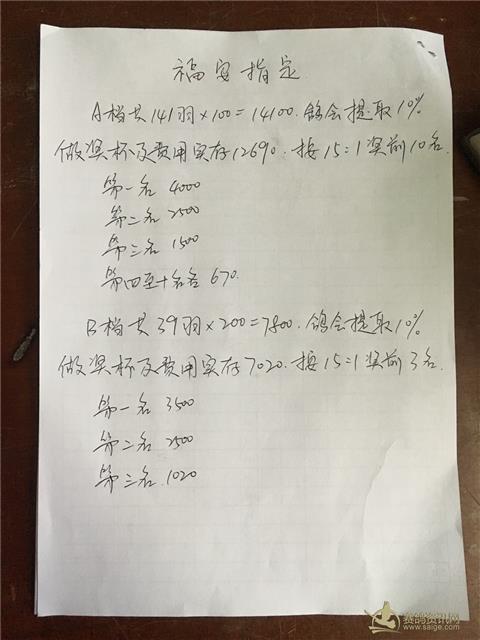 福安指定
A档共141羽×100=14100.鸽会提取10%
做奖杯及费用实存12690.按15:1奖前10名.
第一名 4000
第二名 2500
第三名 1500
第四至十名各 670.
B档共39羽×200=7800.鸽会提取10%
做奖杯及费用实存7020.按15:1奖前3名.
第一名 3500
第二名 2500
第三名.1020
赛鸽资讯网
www.saige.com